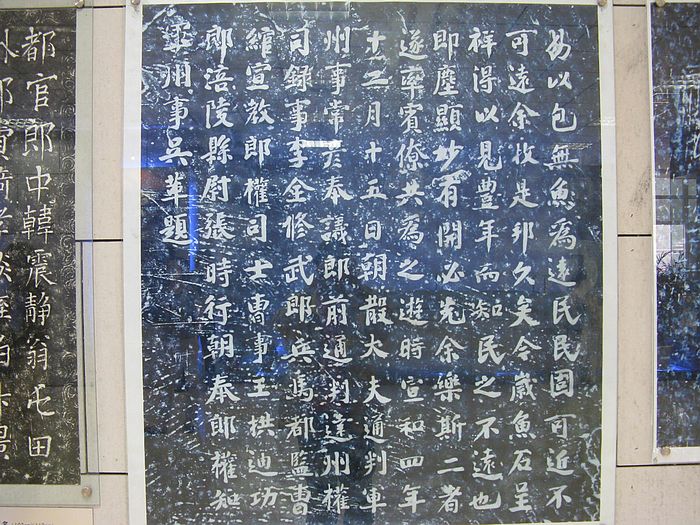 易以包無魚為遠民民固可近不
可遠余牧是邦久矣今歲魚石呈
祥得以見豊年而知民之不遠也
即塵顯妙有開必先余樂斯二者
遂率賓僚共為之遊時宣和四年
十二月十五日朝散大夫通判軍
州事常彥奉議郎前通判達州權
司録事李全修武郎兵馬都監曹
綰宣教郎權司士曹事王拱迪功
郎涪陵縣尉張時行朝奉郎權知
軍州事吳革題
都官郎中韓震静翁屯田
外郎費琦孝琰姪伯升景